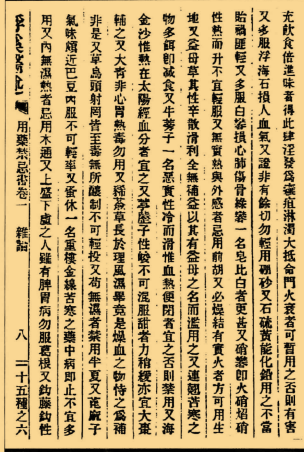 充飲食倍滋味者得此肆淫發為癰疽淋濁大抵命門火衰者可暫用之否則有害
又多服浮海石損人血氣又證非有餘切勿輕用硼砂又石硫黃能化鉛用之不當
貽禍匪輕又多服白礬損心肺傷骨綠礬一名皂比白者更甚又硝礬卽火硝焰硝
性熱而升不宜輕服又無實熱與外感者忌用前胡又必燥結有實火者方可用生
地又益母草其性辛散滑利全無補益以其有益母之名而濫用之又連翹苦寒之
物多餌卽减食又牛蒡子一名惡實性冷而滑惟血熱便閉者宜之否則禁用又海
金沙惟熱在太陽經血分者宜之又葶藶子性峻不可混服甜者力稍緩亦宜大棗
輔之又大青非心胃熱毒勿用又豨薟草長於理風濕畢竟是燥血之物恃之為補
非是又草烏頭射罔皆至毒無所釀制不可輕投又苟無濕者禁用半夏又萆麻子
氣味頗近巴豆內服不可輕率又蚤休一名重樓金線苦寒之藥中病卽止不宜多
用又內無濕熱者忌用木通又上盛下虛之人雖有脾胃病勿服葛根又鈎藤鈎性
用藥禁忌書卷一 雜論 八 二十五種之六